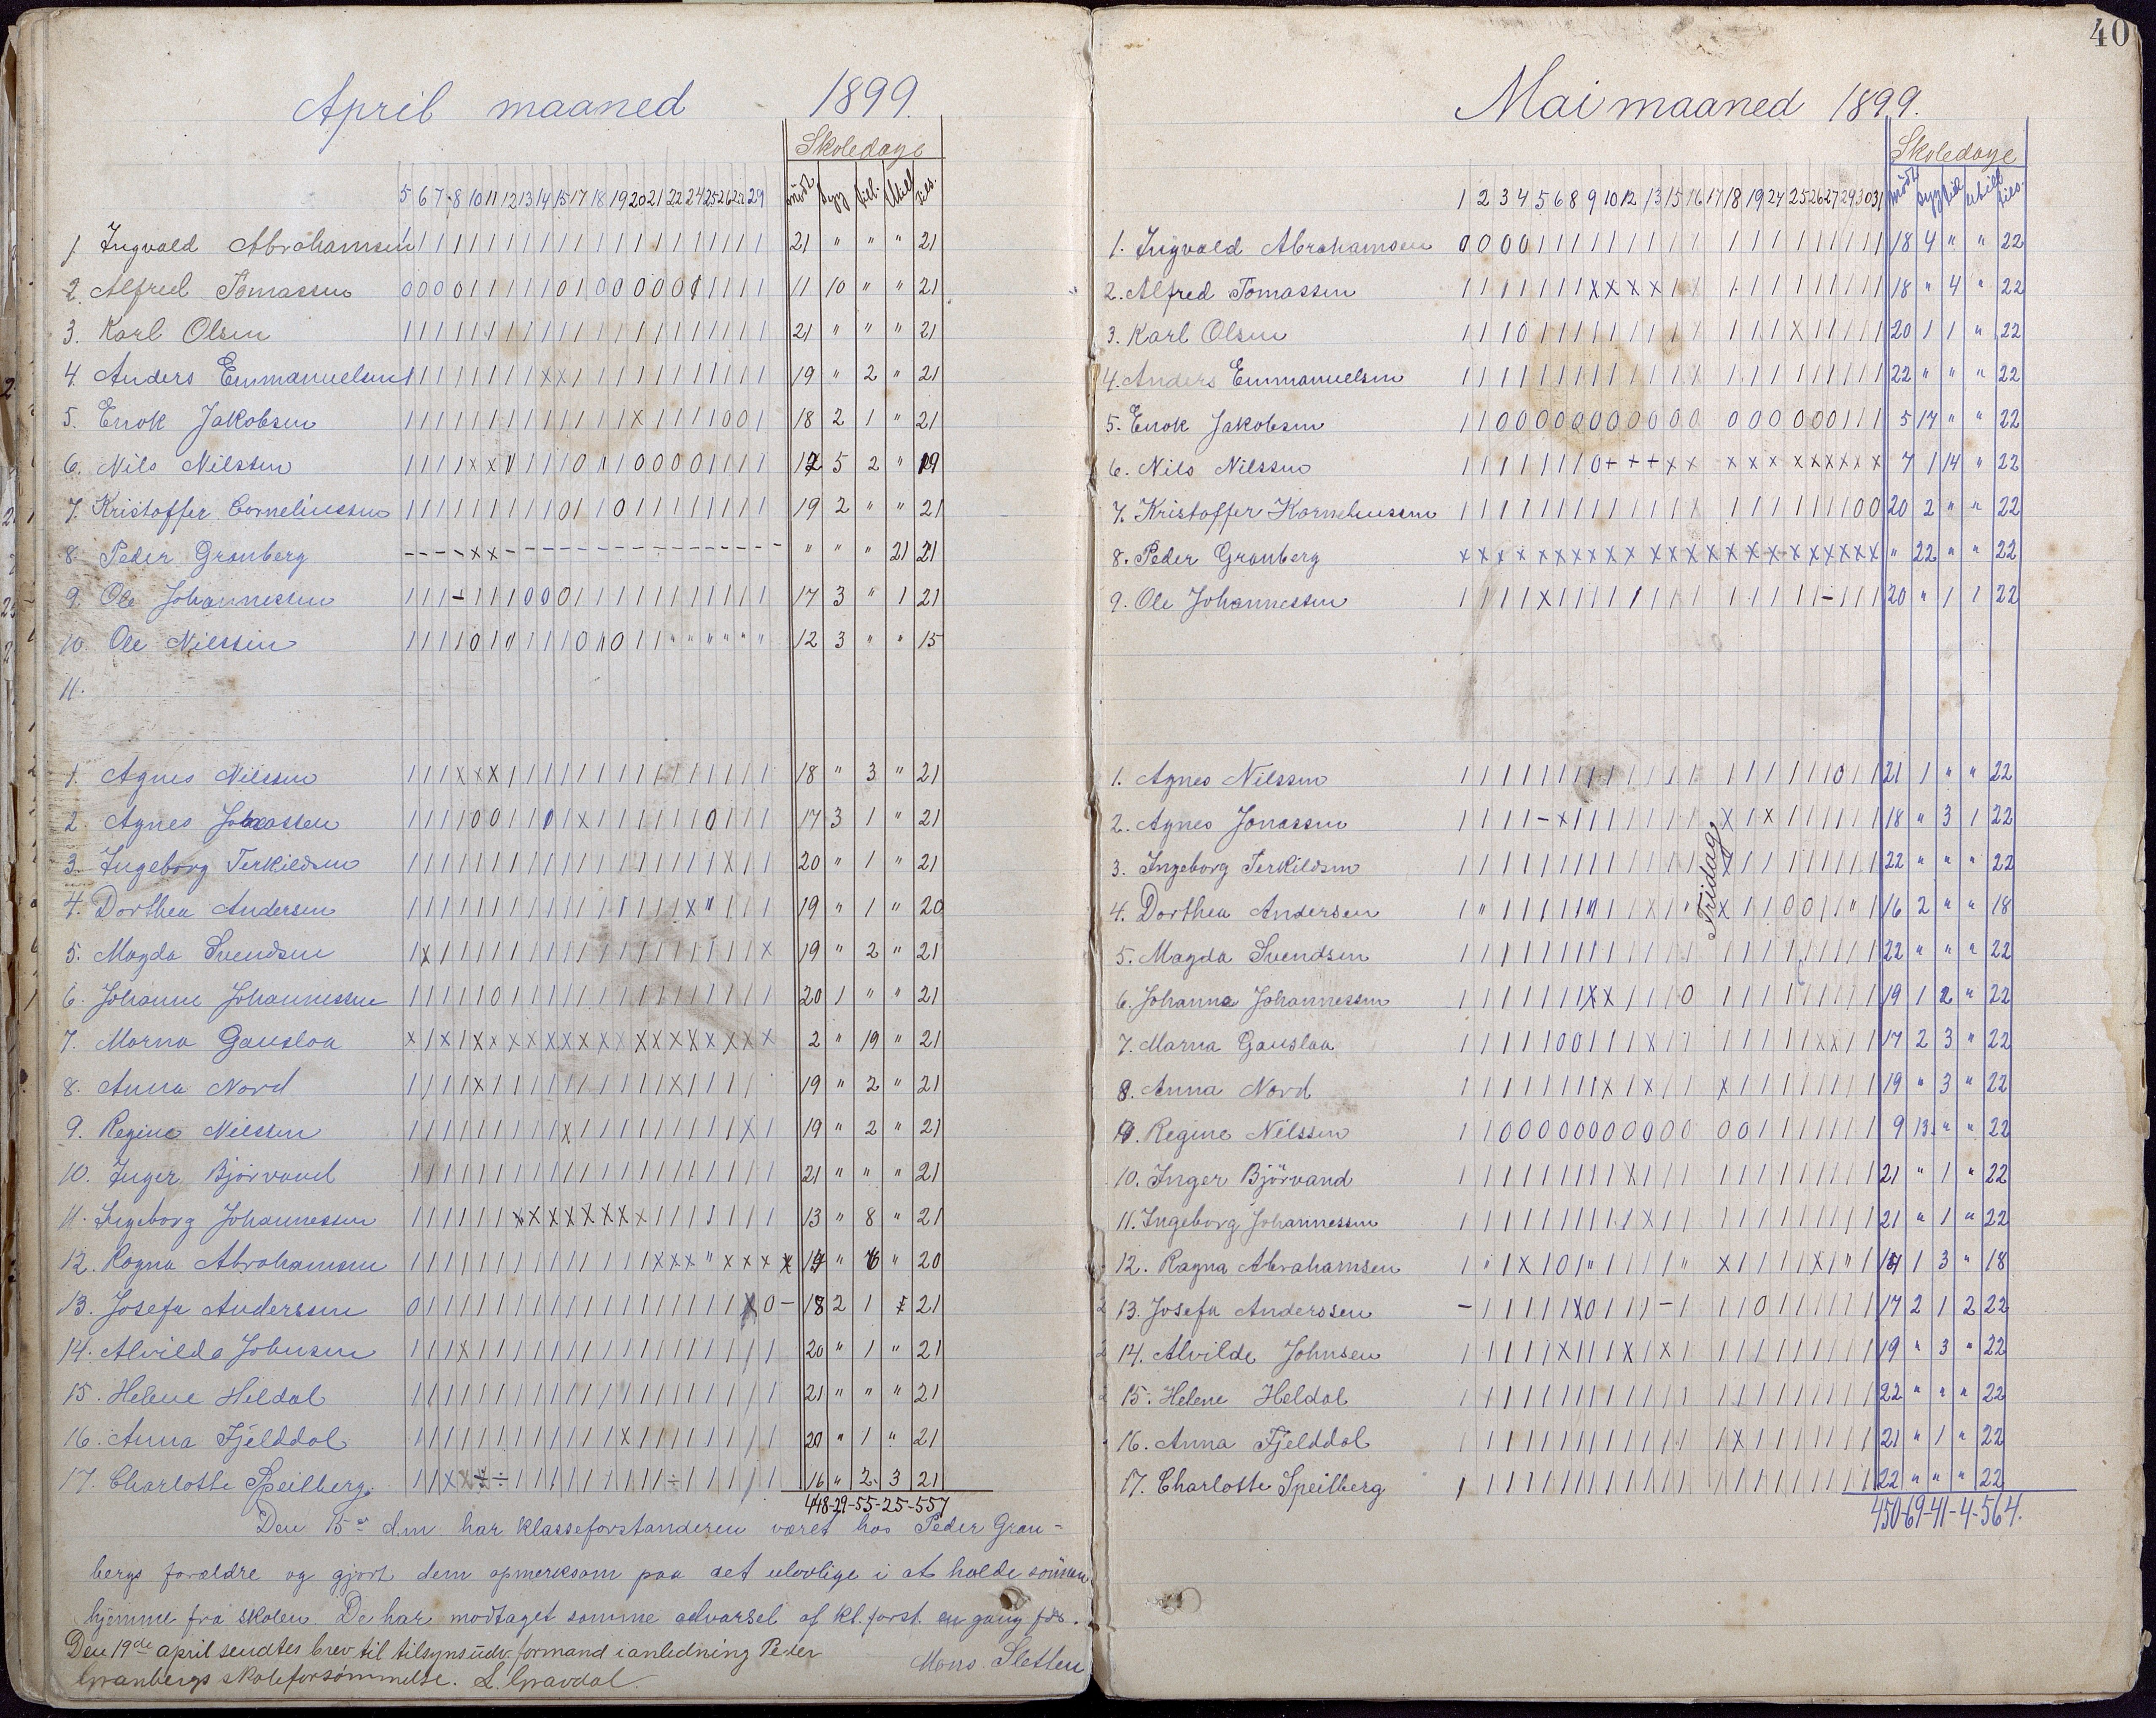 April maaned 1899.
Skoledage
5 6 7 8 10 11 12 13 14 15 17 18 19 20 21 22 24 25 26 27 29 mödt syg till. Utill tils.
1. Ingvald Abrahamsen 21 " " " 21
2. Alfred Tomassen 11 10 " " 21
3. Karl Olsen 21 " " " 21
4. Anders Emmanuelsen 19 " 2 " 21
5. Enok Jakobsen 18 2 1 " 21
6. Nils Nilssen 12 5 2 " 19
7. Kristoffer Corneliussen 19 2 " " 21
8. Peder Granberg " " " 21 21
9. Ole Johannessen 17 3 " 1 21
10. Ole Nilssen 12 3 " " 15
11.
1. Agnes Nilssen 18 " 3 " 21
2. Agnes Jonassen 17 3 1 " 21
3. Ingeborg Terkildsen 20 " 1 " 21
4. Dorthea Andersen 19 " 1 " 20
5. Magda Svendsen 19 " 2 " 21
6. Johanne Johannessen 20 1 " " 21
7. Marna Gauslaa 2 " 19 " 21
8. Anna Nord 19 " 2 " 21
9. Regine Nilssen 19 " 2 " 21
10. Inger Björvand 21 " " " 21
11. Ingeborg Johannessen 13 " 8 " 21
12. Ragna Abrahamsen " " 20
13. Josefa Anderssen 18 2 1 21
14. Alvilda Johnsen 20 " 1 " 21
15. Helene Heldal 21 " " " 21
16. Anna Fjelddal 20 " 1 " 21
17. Charlotte Speilberg. 16 " 2 3 21
448-29-55-25-557
Den 15de d.m. har klasseforstanderen været hos Peder Gran-
bergs forældre og gjort dem opmerksom paa det ulovlige i at holde sönnen
hjemme fra skolen. De har modtaget samme advarsel af kl.forst. en gang för.
Mons Sletten
Den 19de april sendtes brev til tilsynsudv. formand i anledning Peder
Granbergs skoleforsömmelse. L. Gravdal.
40
Mai maaned 1899.
Skoledage
1 2 3 4 5 6 8 9 10 12 13 15 16 17 18 19 24 25 26 27 29 30 31 mödt syg till utill tils.
1. Ingvald Abrahamsen 18 4 " " 22
2. Alfred Tomassen 18 " 4 " 22
3. Karl Olsen 20 1 1 " 22
4. Anders Emmanuelsen 22 " " " 22
5. Enok Jakobsen 5 17 " " 22
6. Nils Nilssen 7 1 14 " 22
7. Kristoffer Korneliussen 20 2 " " 22
8. Peder Granberg " 22 " " 22
9. Ole Johannessen 20 " 1 1 22
Fridag
1. Agnes Nilssen 21 1 " " 22
2. Agnes Jonassen 18 " 3 1 22
3. Ingeborg Terkildsen 22 " " " 22
4. Dorthea Andersen 16 2 " " 18
5. Magda Svendsen 22 " " " 22
6. Johanna Johannessen 19 1 2 " 22
7. Marna Gauslaa 17 2 3 " 22
8. Anna Nord 19 " 3 " 22
9. Regine Nilssen 9 13 " " 22
10. Inger Björvand 21 " 1 " 22
11. Ingeborg Johannessen 21 " 1 " 22
12. Ragna Abrahamsen 14 1 3 " 18
13. Josefa Anderssen 17 2 1 2 22
14. Alvilde Johnsen 19 " 3 " 22
15. Helene Heldal 22 " " " 22
16. Anna Fjelddal 21 " 1 " 22
17. Charlotte Speilberg 22 " " " 22
450-69-41-4-564.